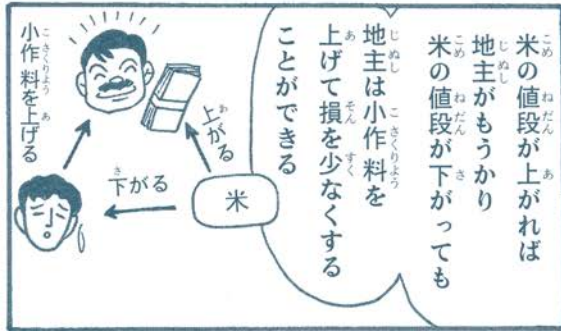 米の値段が上がれば
地主がもうかり
米の値段が下がっても
地主は小作料を
上げて損を少なくする
ことができる
上がる
米
下がる
小作料を上げる